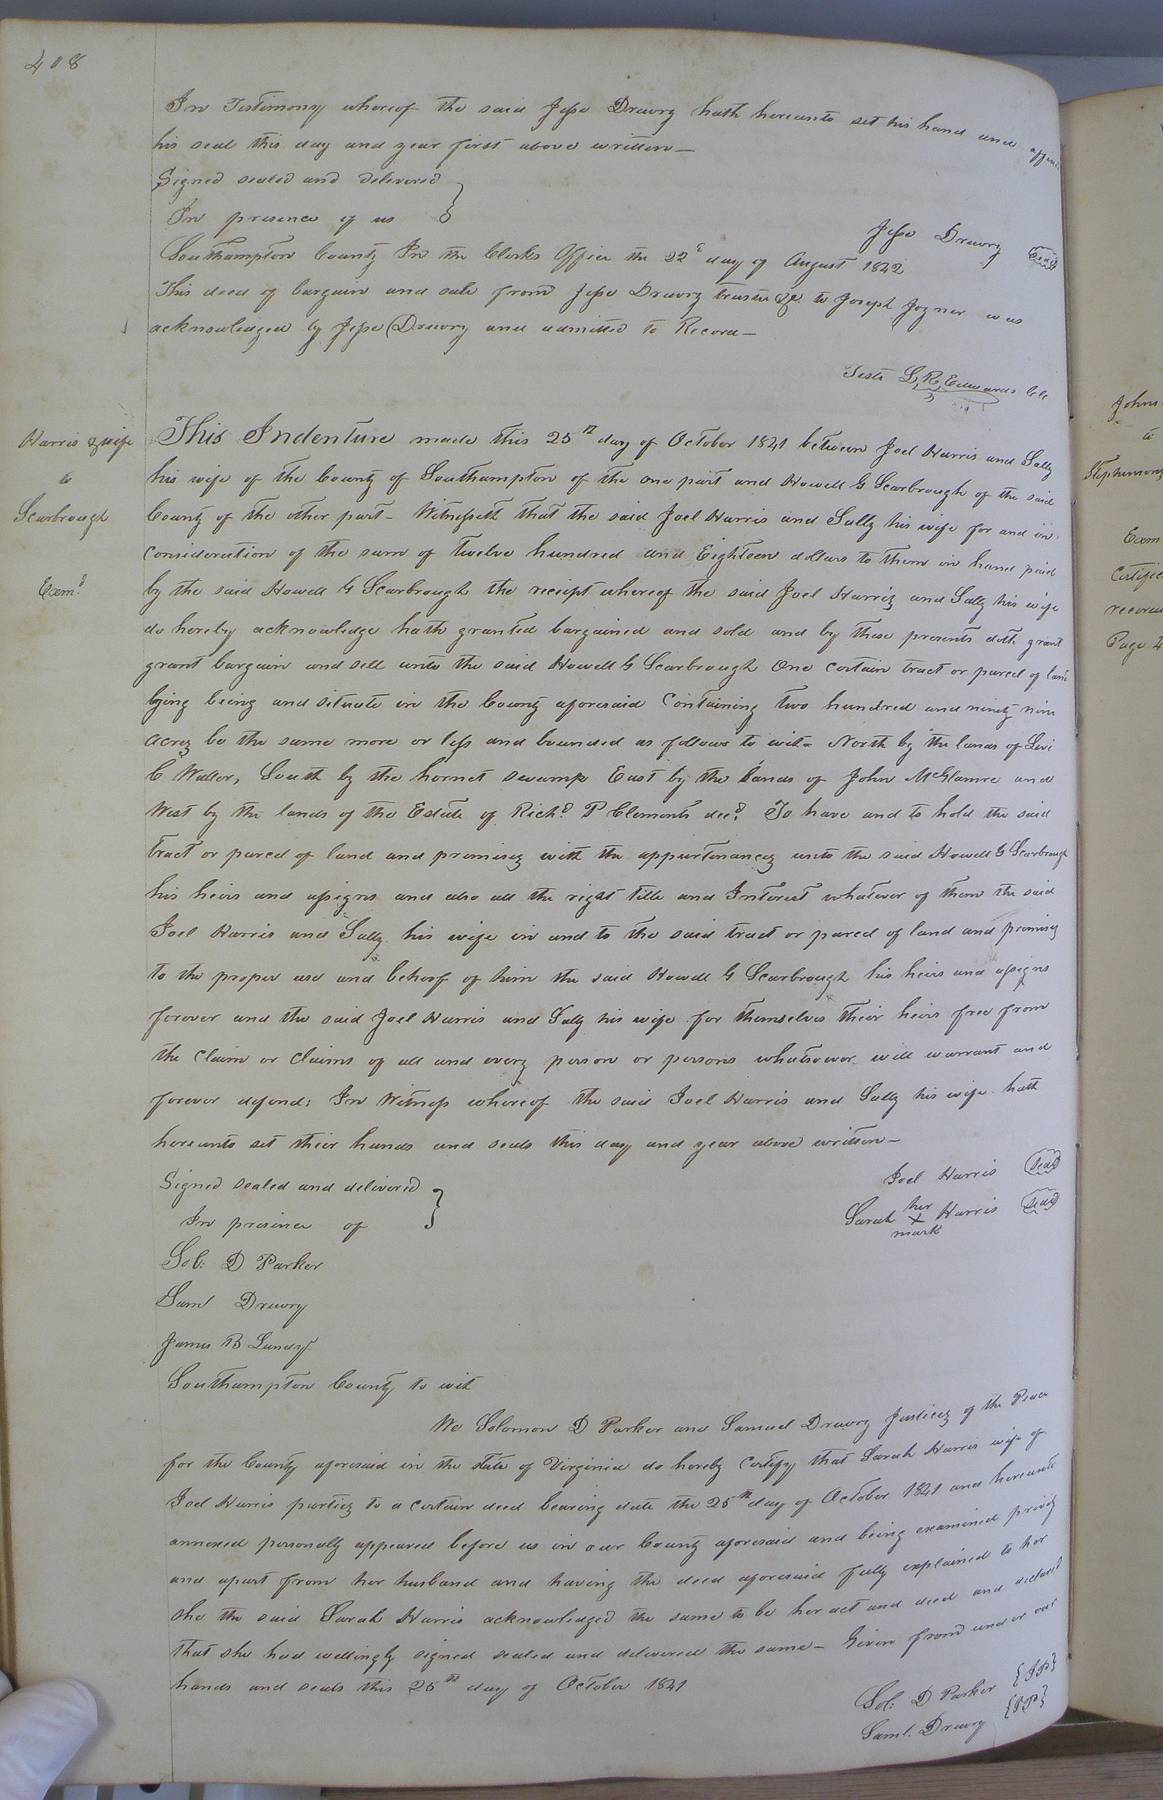 408
In Testimony whereof the said Jesse Drewry hath hereunto set his hand and affixed
his seal this day and year first above written —
Signed sealed and delivered
In presence of us
Jesse Drewry Seal
Southampton County In the Clerks Office the 22d day of August 1842
This deed of bargain and sale from Jesse Drewry trustee &c. to Joseph Joyner was
acknowledged by Jesse Drewry and admitted to Record —
Teste L, R, Edwards Clk
Harris & wife
to
Scarbrough
Exmd
This Indenture made this 25th day of October 1841 between Joel Harris and Sally
his wife of the County of Southampton of the one part and Howell G Scarbrough of the said
County of the other part — Witnesseth that the said Joel Harris and Sally his wife for and in
consideration of the sum of twelve hundred and Eighteen dollars to them in hand paid
by the said Howell G Scarbrough the receipt whereof the said Joel Harris and Sally his wife
do hereby acknowledge hath granted bargained and sold and by these presents doth grant
grant bargain and sell unto the said Howell G Scarbrough One certain tract or parcel of land
lying being and situate in the County aforesaid Containing two hundred and ninety nine
acres be the same more or less and bounded as follows to wit — North by the lands of Levi
C Waller, South by the hornet swamp East by the lands of John McGlamre and
West by the lands of the Estate of Richd P Clements decd. To have and to hold the said
tract or parcel of land and premises with the appurtenances unto the said Howell G Scarbrough
his heirs and assigns and also all the right title and Interest whatever of them the said
Joel Harris and Sally his wife in and to the said tract or parcel of land and premises
to the proper use and behoof of him the said Howell G Scarbrough his heirs and assigns
forever and the said Joel Harris and Sally his wife for themselves their heirs free from
the claim or claims of all and every person or persons whatsoever will warrant and
forever defend; In Witness whereof the said Joel Harris and Sally his wife hath
hereunto set their hands and seals this day and year above written —
Signed sealed and delivered
In presence of
Joel Harris Seal
her
Sarah X Harris Seal
mark
Sol: D Parker
Saml Drewry
James B Lundy
Southampton County to wit
We Solomon D Parker and Samuel Drewry Justices of the Peace
for the County aforesaid in the State of Virginia do hereby Certify that Sarah Harris wife of
Joel Harris parties to a certain deed bearing date the 25th day of October 1841 and hereunto
annexed personally appeared before us in our County aforesaid and being examined privily
and apart from her husband and having the deed aforesaid fully explained to her
she the said Sarah Harris acknowledged the same to be her act and deed and declared
that she had willingly signed sealed and delivered the same — Given from under our
hands and seals this 25th day of October 1841
Sol: D Parker {JP}
Saml. Drewry {JP}
John
to
Exam
Certific
record
Page 4